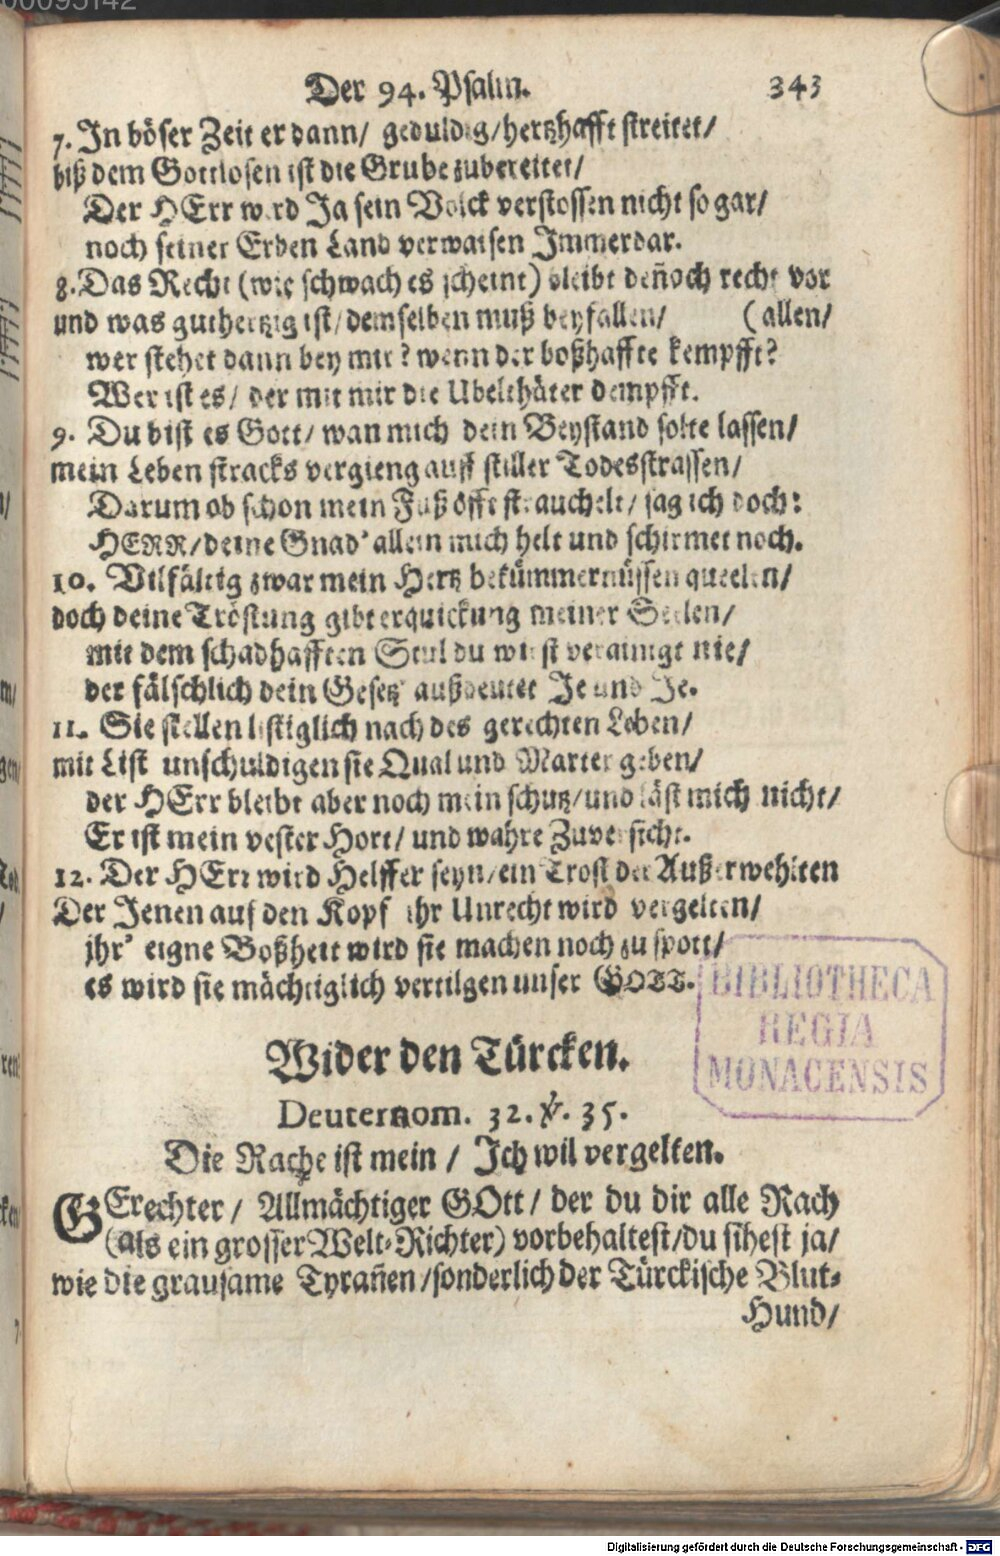 00095142
Der 94. Psalm. 343
7. In böser Zeit er dann/ geduldig/hertzhafft streitet/
biß dem Gottlosen ist die Grube zubereitet/
Der HErr wird Ja sein Volck verstossen nicht so gar/
noch seiner Erben Land verwaisen Immerdar.
8. Das Recht (wie schwach es scheint) bleibt deñoch recht vor
und was guthertzig ist/demselben muß beyfallen/ (allen/
wer stehet dann bey mir? wenn der boßhaffte kempfft?
Wer ist es/ der mit mir die Ubelthäter dempfft.
9. Du bist es Gott/ wan mich dein Beystand solte lassen/
mein Leben stracks vergieng auff stiller Todesstrassen/
Darum ob schon mein Fuß offt strauchelt/ sag ich doch:
HERR/deine Gnad' allein mich helt und schirmet noch.
10. Vilfältig zwar mein Hertz bekümmernüssen queelen/
doch deine Tröstung gibt erquickung meiner Seelen/
mit dem schadhafften Stul du wirst verainigt nie/
der fälschlich dein Gesetz außdeutet Je und Je.
11. Sie stellen listiglich nach des gerechten Leben/
mit List unschuldigen sie Qual und Marter geben/
der HErr bleibt aber noch mein schutz/und läst mich nicht/
Er ist mein vester Hort/ und wahre Zuversicht.
12. Der HErr wird Helffer seyn/ein Trost der Außerwehlten
Der Jenen auf den Kopf ihr Unrecht wird vergelten/
jhr' eigne Boßheit wird sie machen noch zu spott/
es wird sie mächtiglich vertilgen unser GOTT.
BIBLIOTHECA
REGIA
MONACENSIS
Wider den Türcken.
Deuternom. 32. ℣. 35.
Die Rache ist mein / Ich wil vergelten.
GErechter/ Allmächtiger GOtt/ der du dir alle Rach
(als ein grosser Welt-Richter) vorbehaltest/du sihest ja/
wie die grausame Tyrañen/sonderlich der Türckische Blut-
Hund/
Digitalisierung gefördert durch die Deutsche Forschungsgemeinschaft - DFG